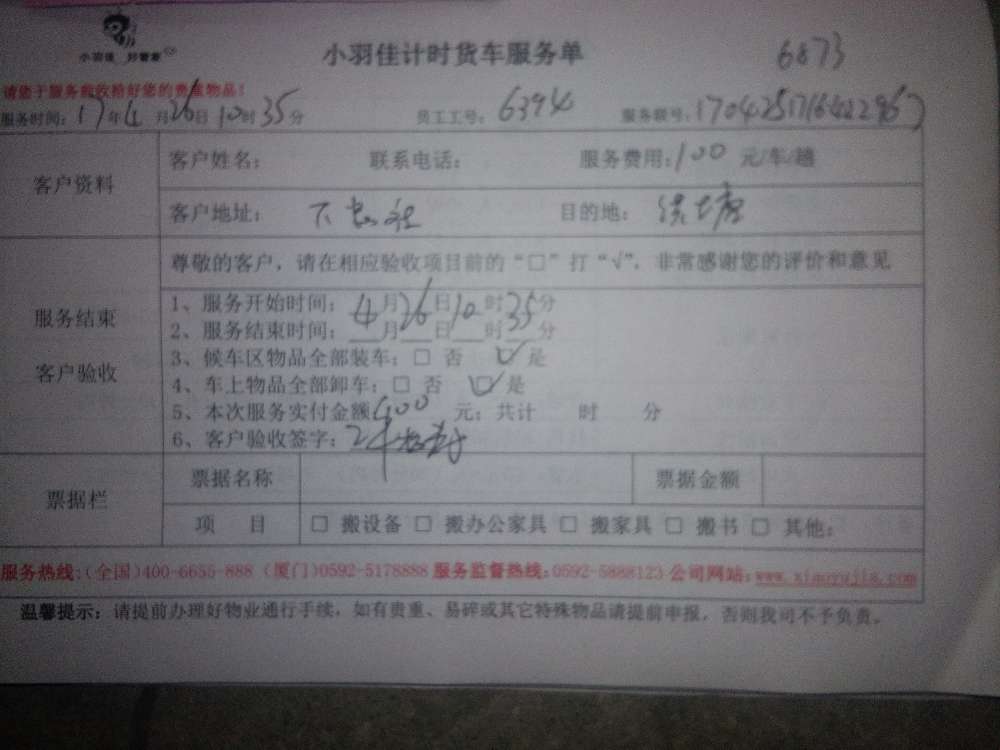 小羽佳 好管家
小羽佳计时货车服务单
6873
请您于服务前收拾好您的贵重物品！
服务时间：17年4月26日10时35分 员工工号：6394 服务联号：
客户资料
客户姓名： 联系电话： 服务费用：100 元/车/趟
客户地址： 目的地：
服务结束
客户验收
尊敬的客户，请在相应验收项目前的“□”打“√”，非常感谢您的评价和意见
1、服务开始时间：4月26日10时35分
2、服务结束时间：__月__日__时__分
3、候车区物品全部装车：□ 否 ☑ 是
4、车上物品全部卸车：□ 否 ☑ 是
5、本次服务实付金额 元；共计 时 分
6、客户验收签字：
票据栏
票据名称 票据金额
项 目 □ 搬设备 □ 搬办公家具 □ 搬家具 □ 搬书 □ 其他：
服务热线：(全国)400-6655-888 (厦门)0592-5178888 服务监督热线：0592-5888123 公司网站：www.xiaoyujia.com
温馨提示：请提前办理好物业通行手续，如有贵重、易碎或其它特殊物品请提前申报，否则我司不予负责。